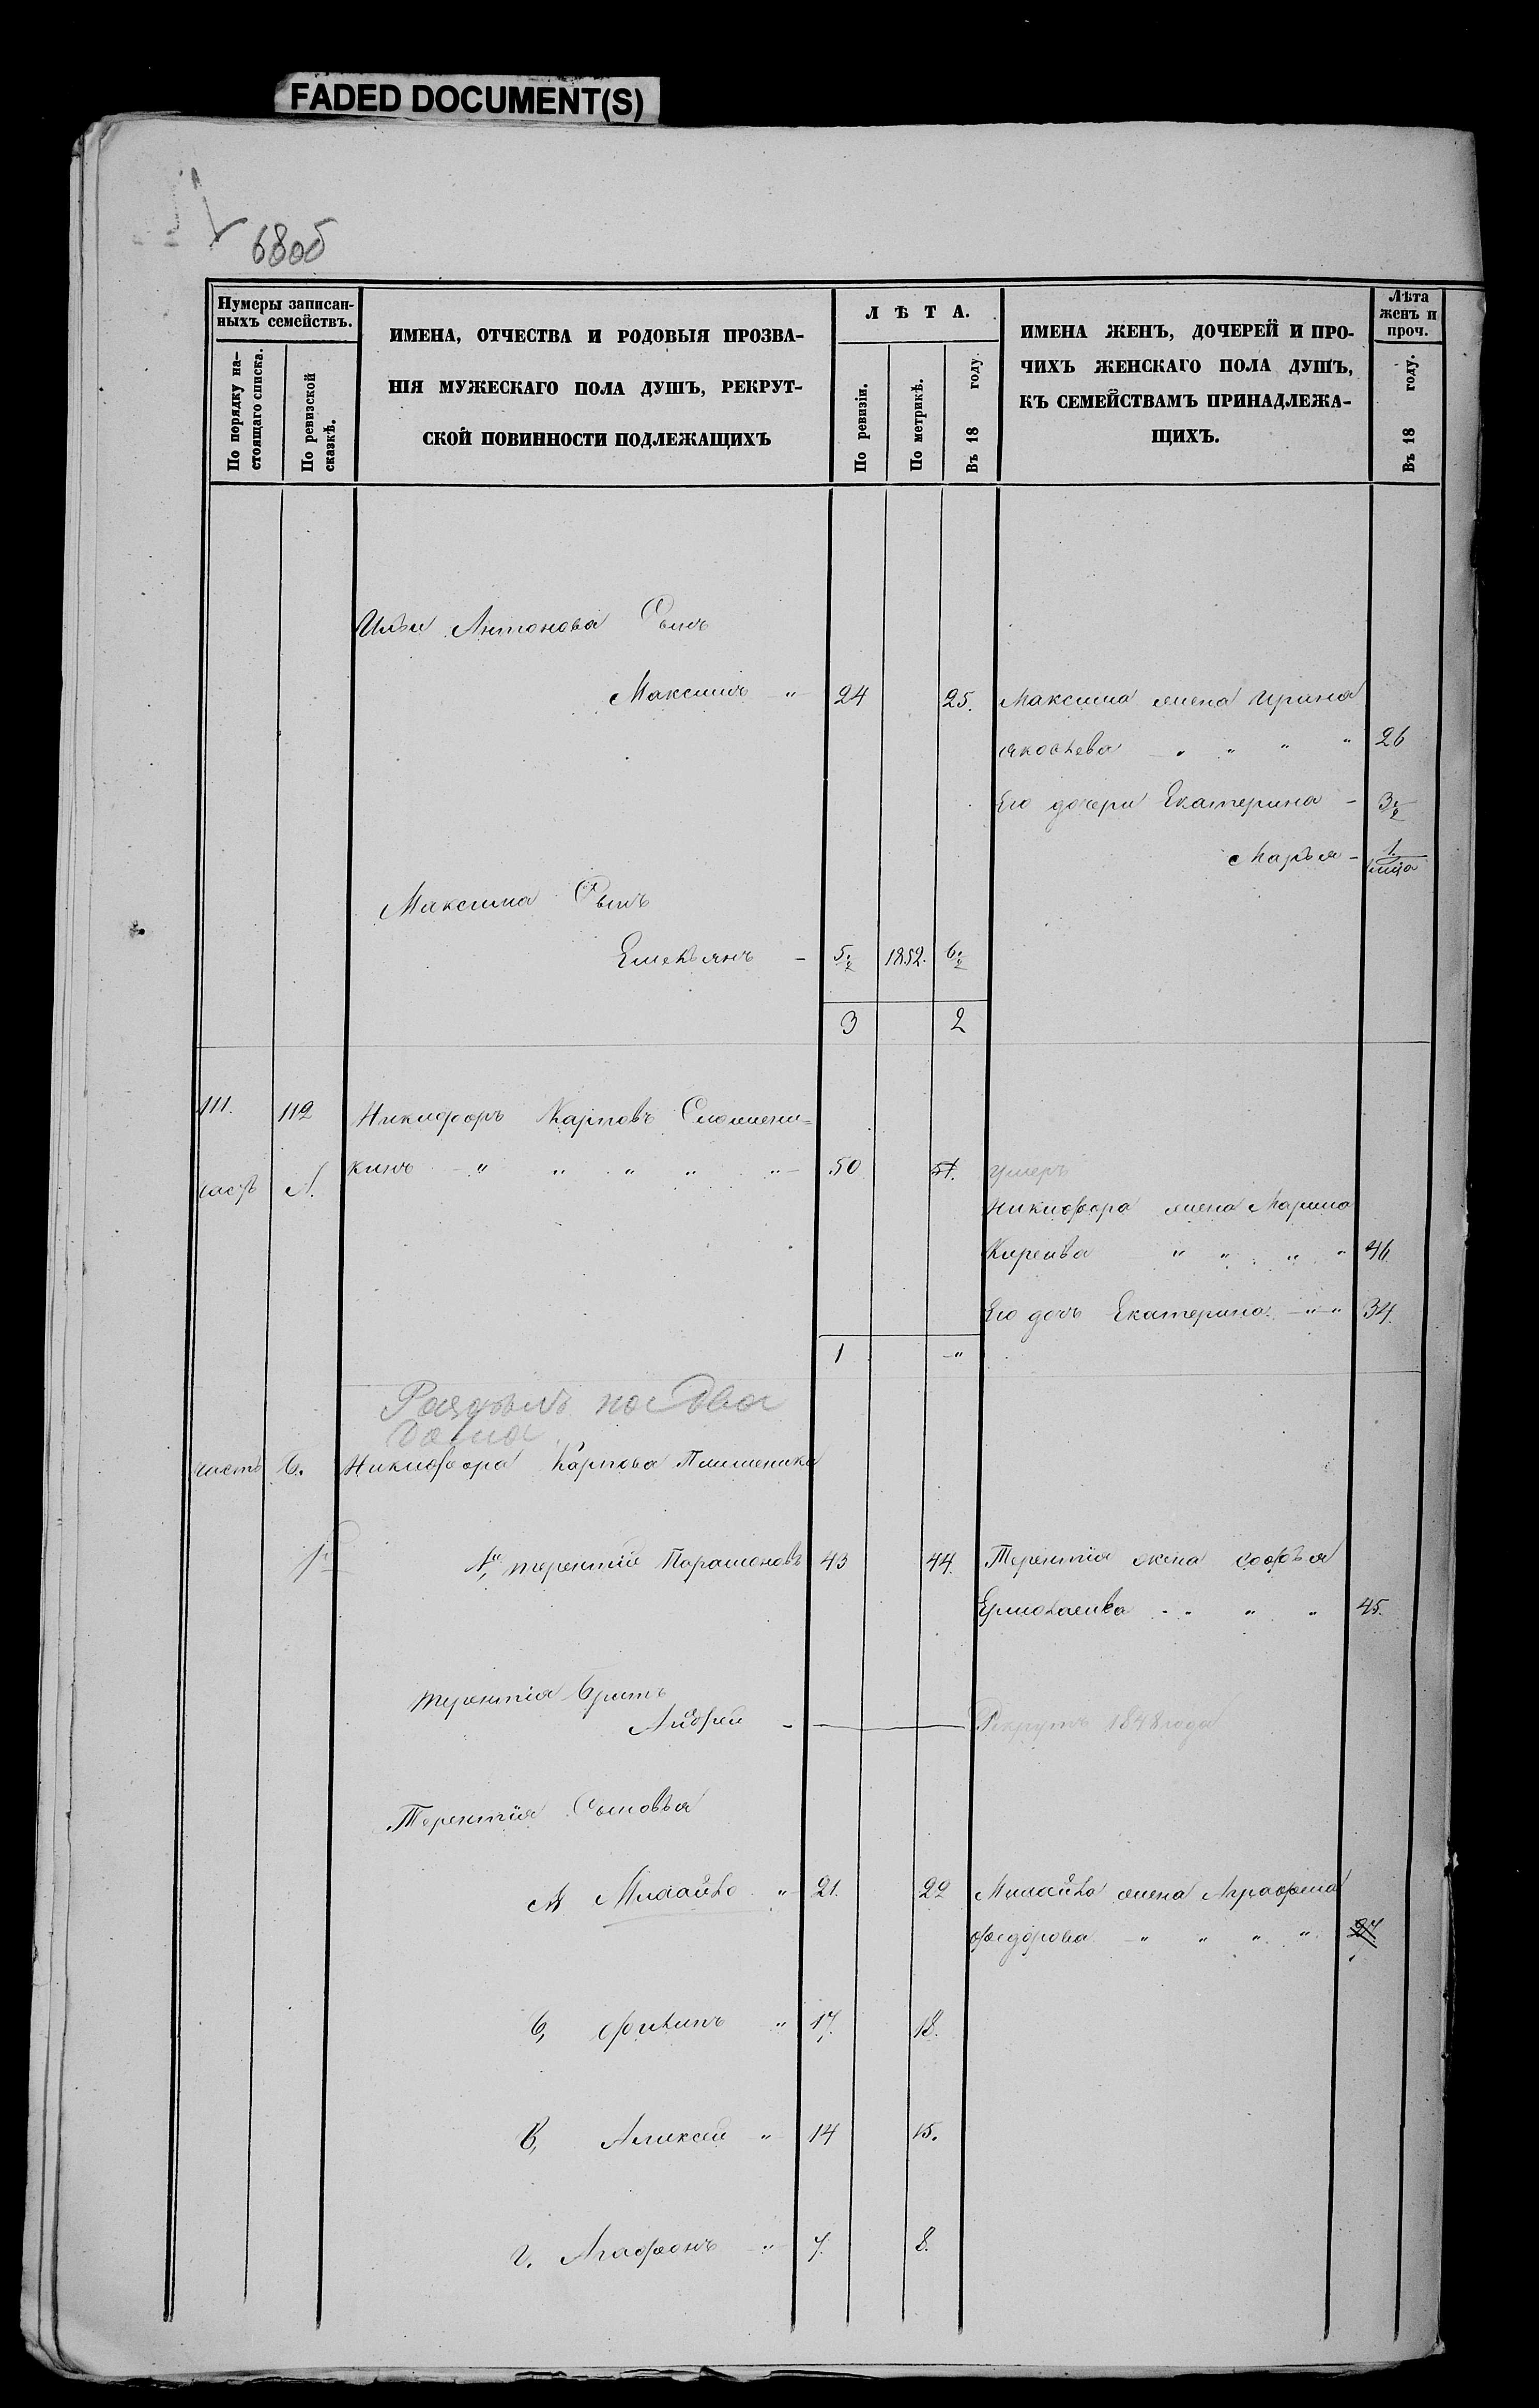 FADED DOCUMENT(S)
68об
Нумеры записан-
ныхъ семействъ.
По порядку на-
стоящаго списка.
По ревизской
сказкѣ.
ИМЕНА, ОТЧЕСТВА И РОДОВЫЯ ПРОЗВА-
НІЯ МУЖЕСКАГО ПОЛА ДУШЪ, РЕКРУТ-
СКОЙ ПОВИННОСТИ ПОДЛЕЖАЩИХЪ
ЛѢТА.
По ревизіи.
По метрикѣ.
Въ 18 году.
ИМЕНА ЖЕНЪ, ДОЧЕРЕЙ И ПРО-
ЧИХЪ ЖЕНСКАГО ПОЛА ДУШЪ,
КЪ СЕМЕЙСТВАМЪ ПРИНАДЛЕЖА-
ЩИХЪ.
Лѣта
женъ и
проч.
Въ 18 году.
Антонова Сынъ
Максимъ " 24 25. Максима жена Ирина
Яковлева " " " " 26
Его дочери Екатерина - 3½
Марья - 1
Максима Сынъ
Емельянъ - 5½ 1852. 6½
3 2
111. 112 Никифоръ Карповъ
кинъ " " " " " 50 51. умеръ
часть А.
Никифора жена Марина
" " " " 46
Его дочь Екатерина " " 34.
1 "
Раздѣлъ на два
дома
часть Б. Никифора Карпова Племянники
1й терентий Парамоновъ 43 44. Терентия жена софья
Ермолаева - " " " 45.
терентия братъ
Андрей - Рекрутъ 1848 года
Терентия Сыновья
А Михайло " 21. 22 Михайла жена Аграфена
федорова " " " " 27
б, филипъ " 17. 18.
В, Алексей " 14 15.
г. Агафонъ " 7. 8.